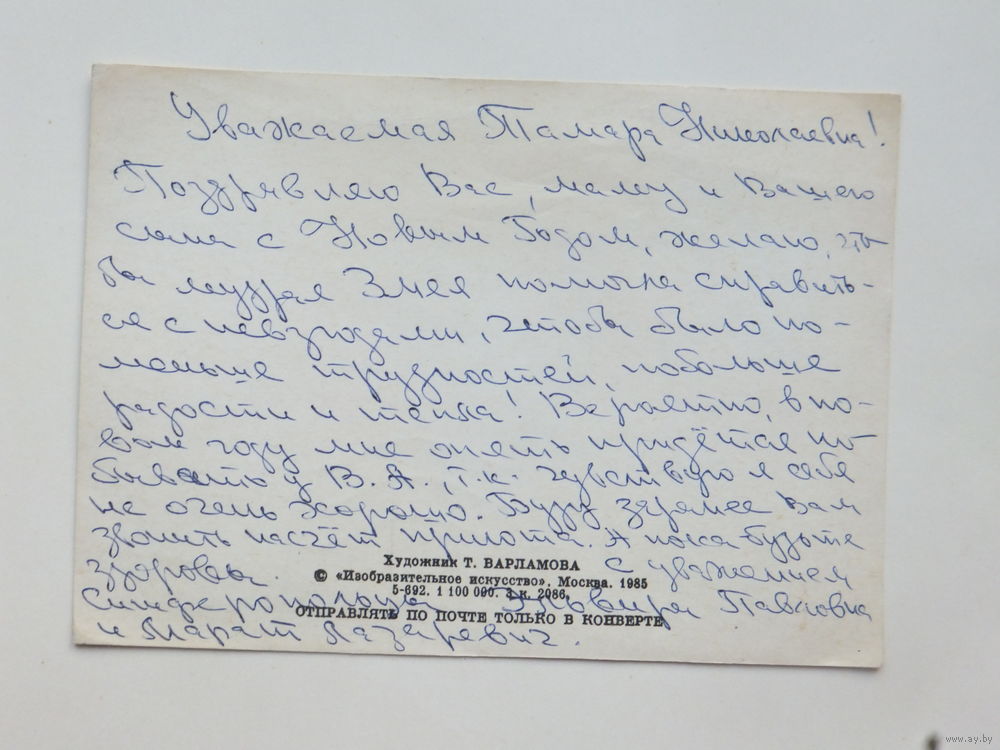 Уважаемая Тамара Николаевна!
Поздравляю Вас, маму и Вашего
сына с Новым Годом, желаю, что-
бы мудрая Змея помогла справить-
ся с невзгодами, чтобы было по-
меньше трудностей, побольше
радости и тепла! Вероятно, в но-
вом году мне опять придётся по-
бывать у В.А., т.к. чувствую я себя
не очень хорошо. Буду заранее Вам
звонить насчёт приюта. А пока будьте
здоровы. С уважением
Художник Т. ВАРЛАМОВА
© «Изобразительное искусство». Москва. 1985
5-692. 1 100 000. З.к. 2086.
Эльвира Павловна
ОТПРАВЛЯТЬ ПО ПОЧТЕ ТОЛЬКО В КОНВЕРТЕ
и Марат Лазаревич.
www.ay.by